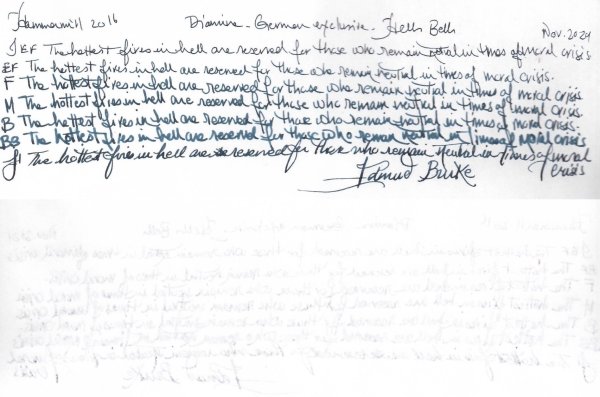 Hammermill 20lb Diamine - German exclusive - Hells Bells Nov. 2024
JEF The hottest fires in hell are reserved for those who remain neutral in times of moral crisis
EF The hottest fires in hell are reserved for those who remain neutral in times of moral crisis.
F The hottest fires in hell are reserved for those who remain neutral in times of moral crisis.
M The hottest fires in hell are reserved for those who remain neutral in times of moral crisis.
B The hottest fires in hell are reserved for those who remain neutral in times of moral crisis.
BB The hottest fires in hell are reserved for those who remain neutral in times of moral crisis
The hottest fires in hell are reserved for those who remain neutral in times of moral
crisis
Edmund Burke